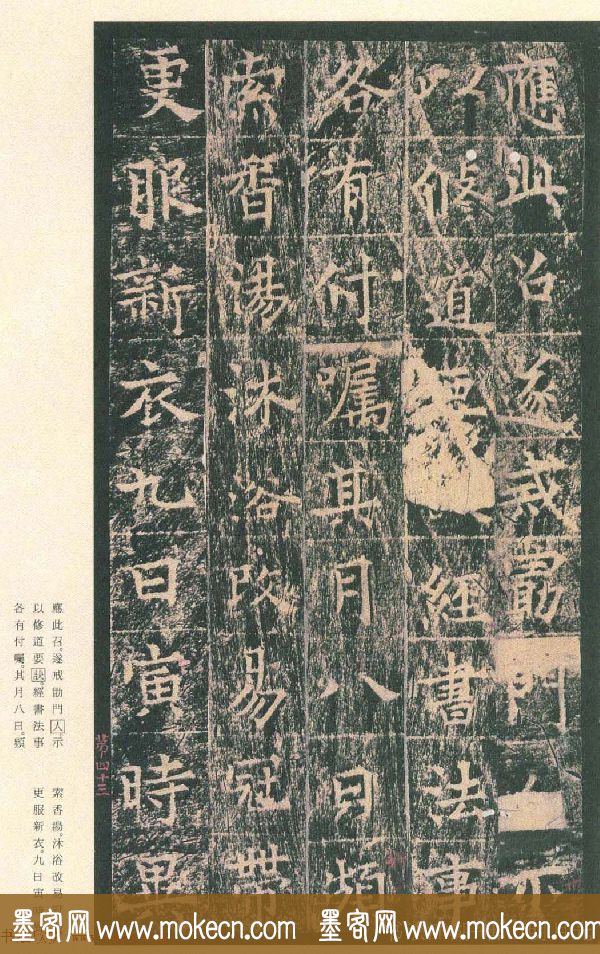 應此召遂戒勖門人示
以修道要經書法事
各有付囑其月八日頻
索香湯沐浴改易冠帶
更服新衣九日寅時異
第四十三
應此召。遂戒勖門人示
以修道要訣。經書法事
各有付囑。其月八日。頻
索香湯。沐浴改易
更服新衣。九日寅
墨客网 www.mokecn.com 墨客网 www.mokecn.com